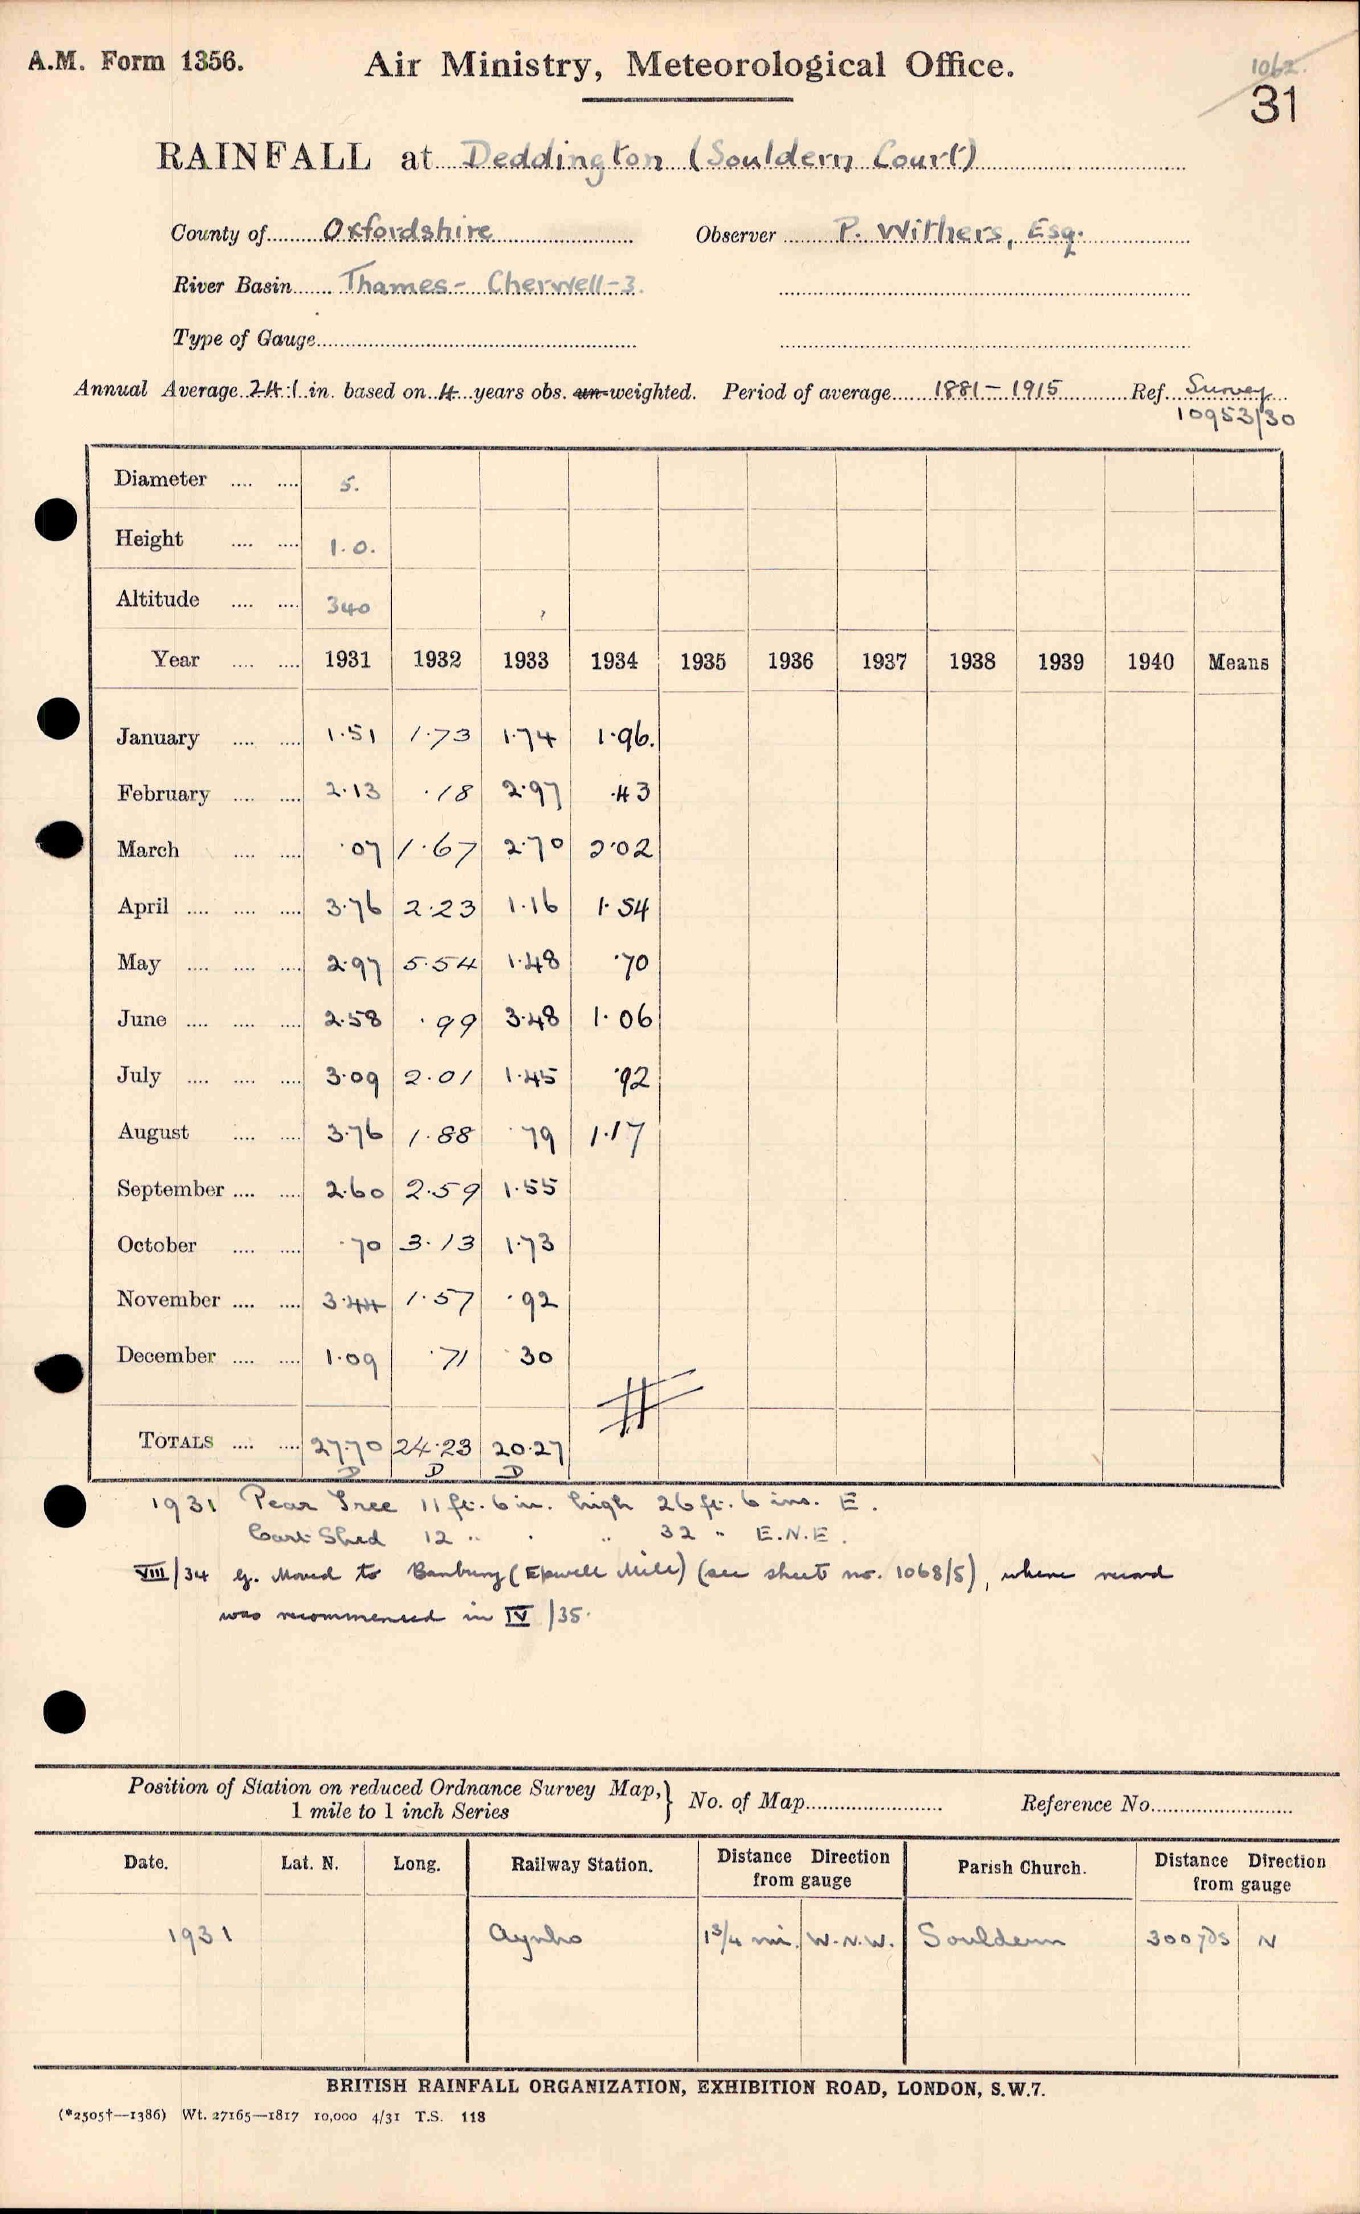 A.M. Form 1356.
Air Ministry, Meteorological Office.
1062.
31
RAINFALL at Deddington (Souldern Court)
County of Oxfordshire Observer P. Withers, Esq.
River Basin Thames - Cherwell - 3.
Type of Gauge
Annual Average 24.1 in. based on 4 years obs. un-weighted. Period of average 1881 - 1915 Ref. Survey
10953/30
Diameter 5.
Height 1.0.
Altitude 340
Year 1931 1932 1933 1934 1935 1936 1937 1938 1939 1940 Means
January 1.51 1.73 1.74 1.96.
February 2.13 .18 2.97 .43
March .07 1.67 2.70 2.02
April 3.76 2.23 1.16 1.54
May 2.97 5.54 1.48 .70
June 2.58 .99 3.48 1.06
July 3.09 2.01 1.45 .92
August 3.76 1.88 .79 1.17
September 2.60 2.59 1.55
October .70 3.13 1.73
November 3.44 1.57 .92
December 1.09 .71 .30
TOTALS 27.70 24.23 20.27
D D D
1931 Pear Tree 11 ft. 6 in. high 26 ft. 6 ins. E.
Cart Shed 12 " " " 32 " E.N.E.
VIII/34 G. Moved to Banbury (Epwell Mill) (see sheet no. 1068/5), where record
was recommenced in IV/35.
Position of Station on reduced Ordnance Survey Map, } No. of Map Reference No.
1 mile to 1 inch Series
Date. Lat. N. Long. Railway Station. Distance Direction from gauge Parish Church. Distance Direction from gauge
1931 Aynho 1 3/4 mi. W.N.W. Souldern 300 yds N
BRITISH RAINFALL ORGANIZATION, EXHIBITION ROAD, LONDON, S.W.7.
(*2505†—1386) Wt. 27165—1817 10,000 4/31 T.S. 118